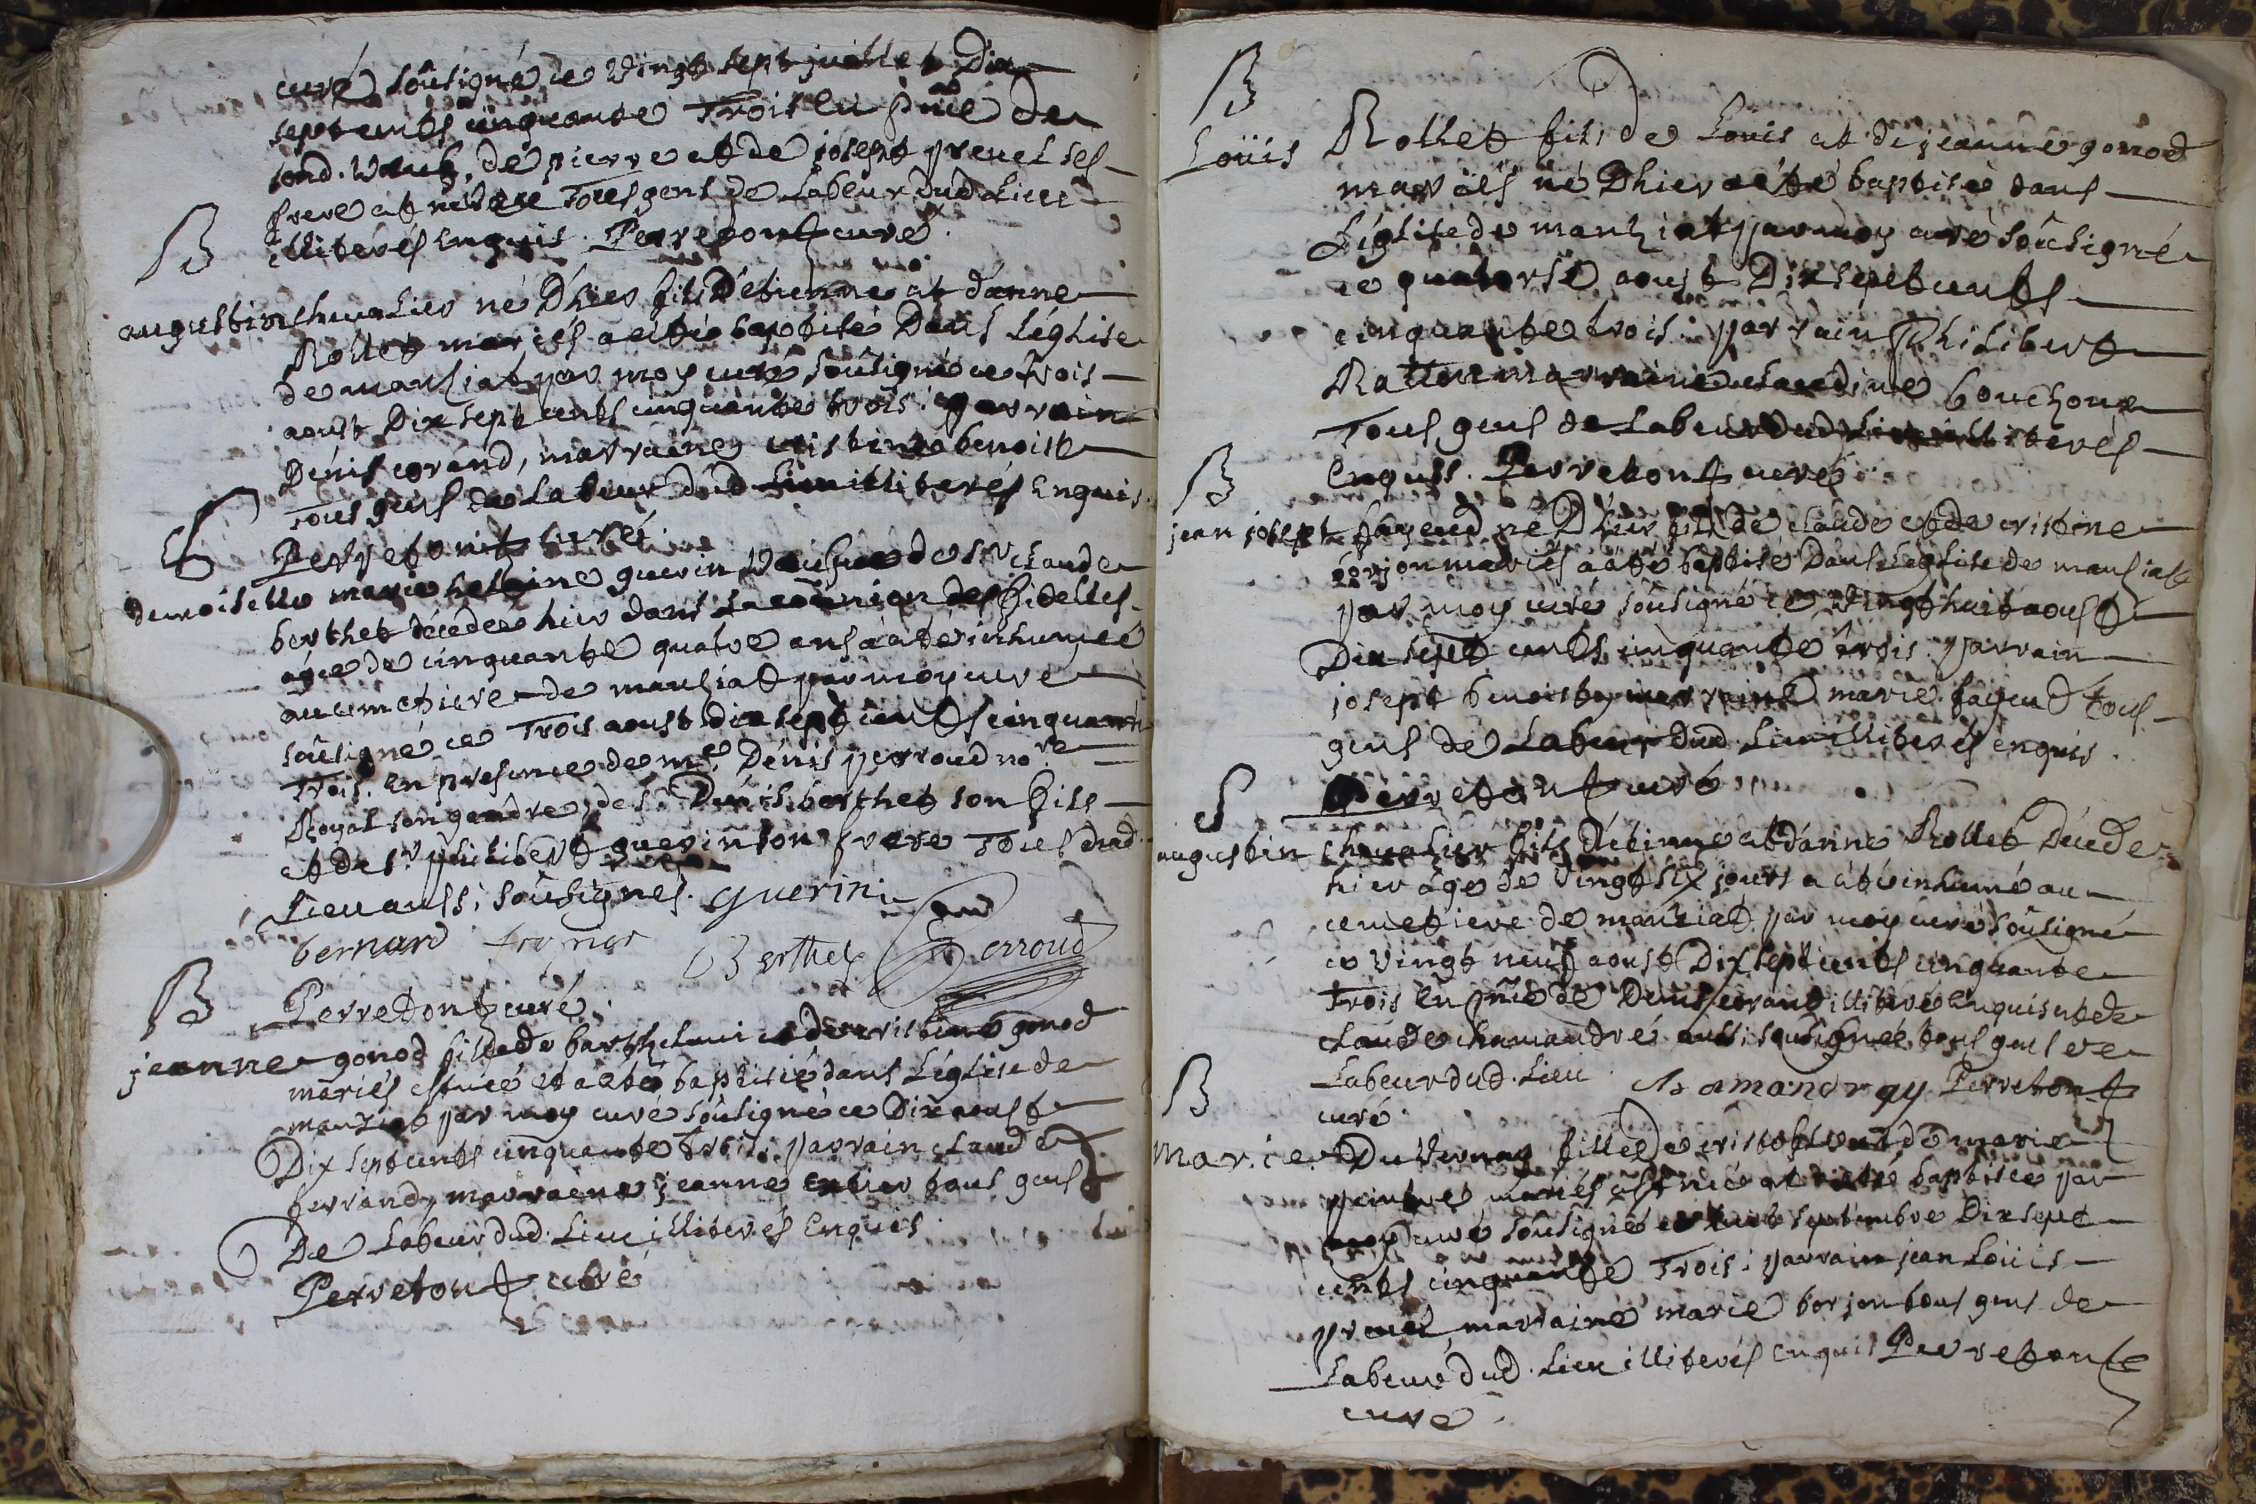 curé soûsigné ce vingt sept juillet Dix
sept cents cinquante Trois en pñce de
sond. de pierre et de josept prevel ses
frere et Tous gens de Labeur dud Lieu
illiterés enquis. Perretont curé.
B
augustin chevalier né Dhier fils Détienne et d'anne
Rollet mariés a esté baptisé Dans L'église
de manziat par moy curé soûsigné ce trois
aoust Dix sept cents cinquante trois. parrain
Dénis egrand, marraine cristine benoist
Tous gens de Labeur dud Lieu illiterés Enquis.
Perretont curé.
S
demoiselle marie helaine guerin veusve de sr. claude
berthet décédée hier dans la coũnion des fidelles
agée de cinquante quatre ans a été inhumée
au cimetiere de manziat par moy curé
soûsigné ce Trois aoust dix sept cents cinquante
Trois. En presence de me. Dénis perroud nore.
Royal son gendre, de sr. Dénis berthet son fils
et de sr. philibert guerin son frere Tous dud.
Lieu aussi soûsignés. Guerin
bernard Berthet Perroud
Perretont curé.
B
jeanne gonod fille de barthelemi et de cristine gonod
mariés est née et a été baptisée dans L'église de
manziat par moy curé soûsigné ce Dix aoust
Dix sept cents cinquante Trois. parrain claude
ferrand, marraine jeanne Enbier tous gens
De Labeur dud. Lieu illiterés Enquis
Perretont curé
B
Loüis Rollet fils de Louis et de jeanne gonod
mariés né Dhier a été baptisé dans
L'église de manziat par moy curé soûsigné
ce quatorse aoust Dix sept cents
cinquante trois. parrain philibert
Ratton marraine claudine bouchoux
Tous gens de Labeur dud Lieu illiterés
Enquis. Perretont curé.
B
jean josept fayeud né Dhier fils de claude et de cristine
borjon mariés a été baptisé Dans L'église de manziat
par moy curé soûsigné ce vingt huit aoust
Dix sept cents cinquante trois. parrain
josept benoist, marraine marie fayeud tous
gens de Labeur dud. Lieu illiterés enquis.
Perretont curé
S
augustin chevalier fils Détienne et d'anne Rollet Décédé
hier âge de vingt six jours a été inhumé au
cemetiere de manziat par moy curé soûsigné
ce vingt neuf aoust Dix sept cents cinquante
Trois En pñce de Denis egrand illiteré enquis et de
claude chamandré aussi soûsigné tous gens de
Labeur dud. Lieu chamandray Perretont
curé.
B
Marie Duvernay fille de cristophle et de marie
peintre mariés est née et a été baptisée par
moy curé soûsigné ce huit septembre Dix sept
cents cinquante Trois. parrain jean Loüis
prevel, marraine marie borjon tous gens de
Labeur dud. Lieu illiterés enquis Perretont
curé.